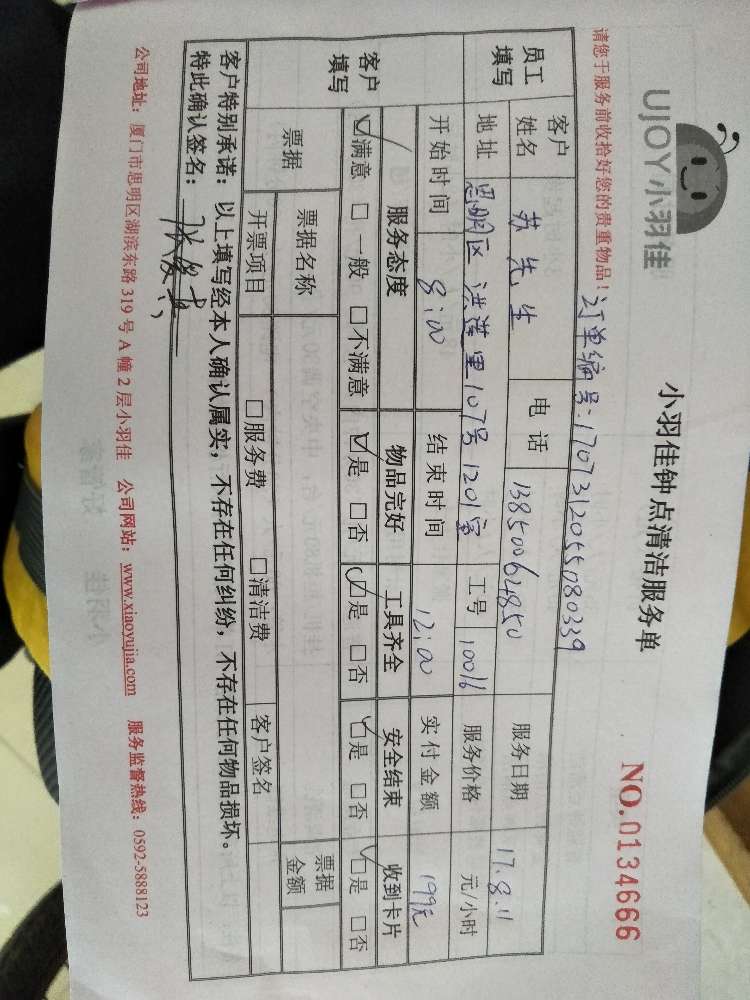 UJOY小羽佳
小羽佳钟点清洁服务单
NO.0134666
请您于服务前收拾好您的贵重物品！
订单编号:17073120555080339
员工填写 客户姓名 苏先生 电话 13850064850 服务日期 17.8.11
地址 思明区洪莲里107号1201室 工号 10016 服务价格 元/小时
开始时间 8:00 结束时间 12:00 实付金额 199元
客户填写 服务态度 物品完好 工具齐全 安全结束 收到卡片
☑满意 □一般 □不满意 ☑是 □否 ☑是 □否 ☑是 □否 ☑是 □否
票据 票据名称 票据金额
开票项目 □服务费 □清洁费 客户签名
客户特别承诺：以上填写经本人确认属实，不存在任何纠纷，不存在任何物品损坏。
特此确认签名：
公司地址：厦门市思明区湖滨东路 319 号 A 幢 2 层小羽佳 公司网站：www.xiaoyujia.com 服务监督热线：0592-5888123